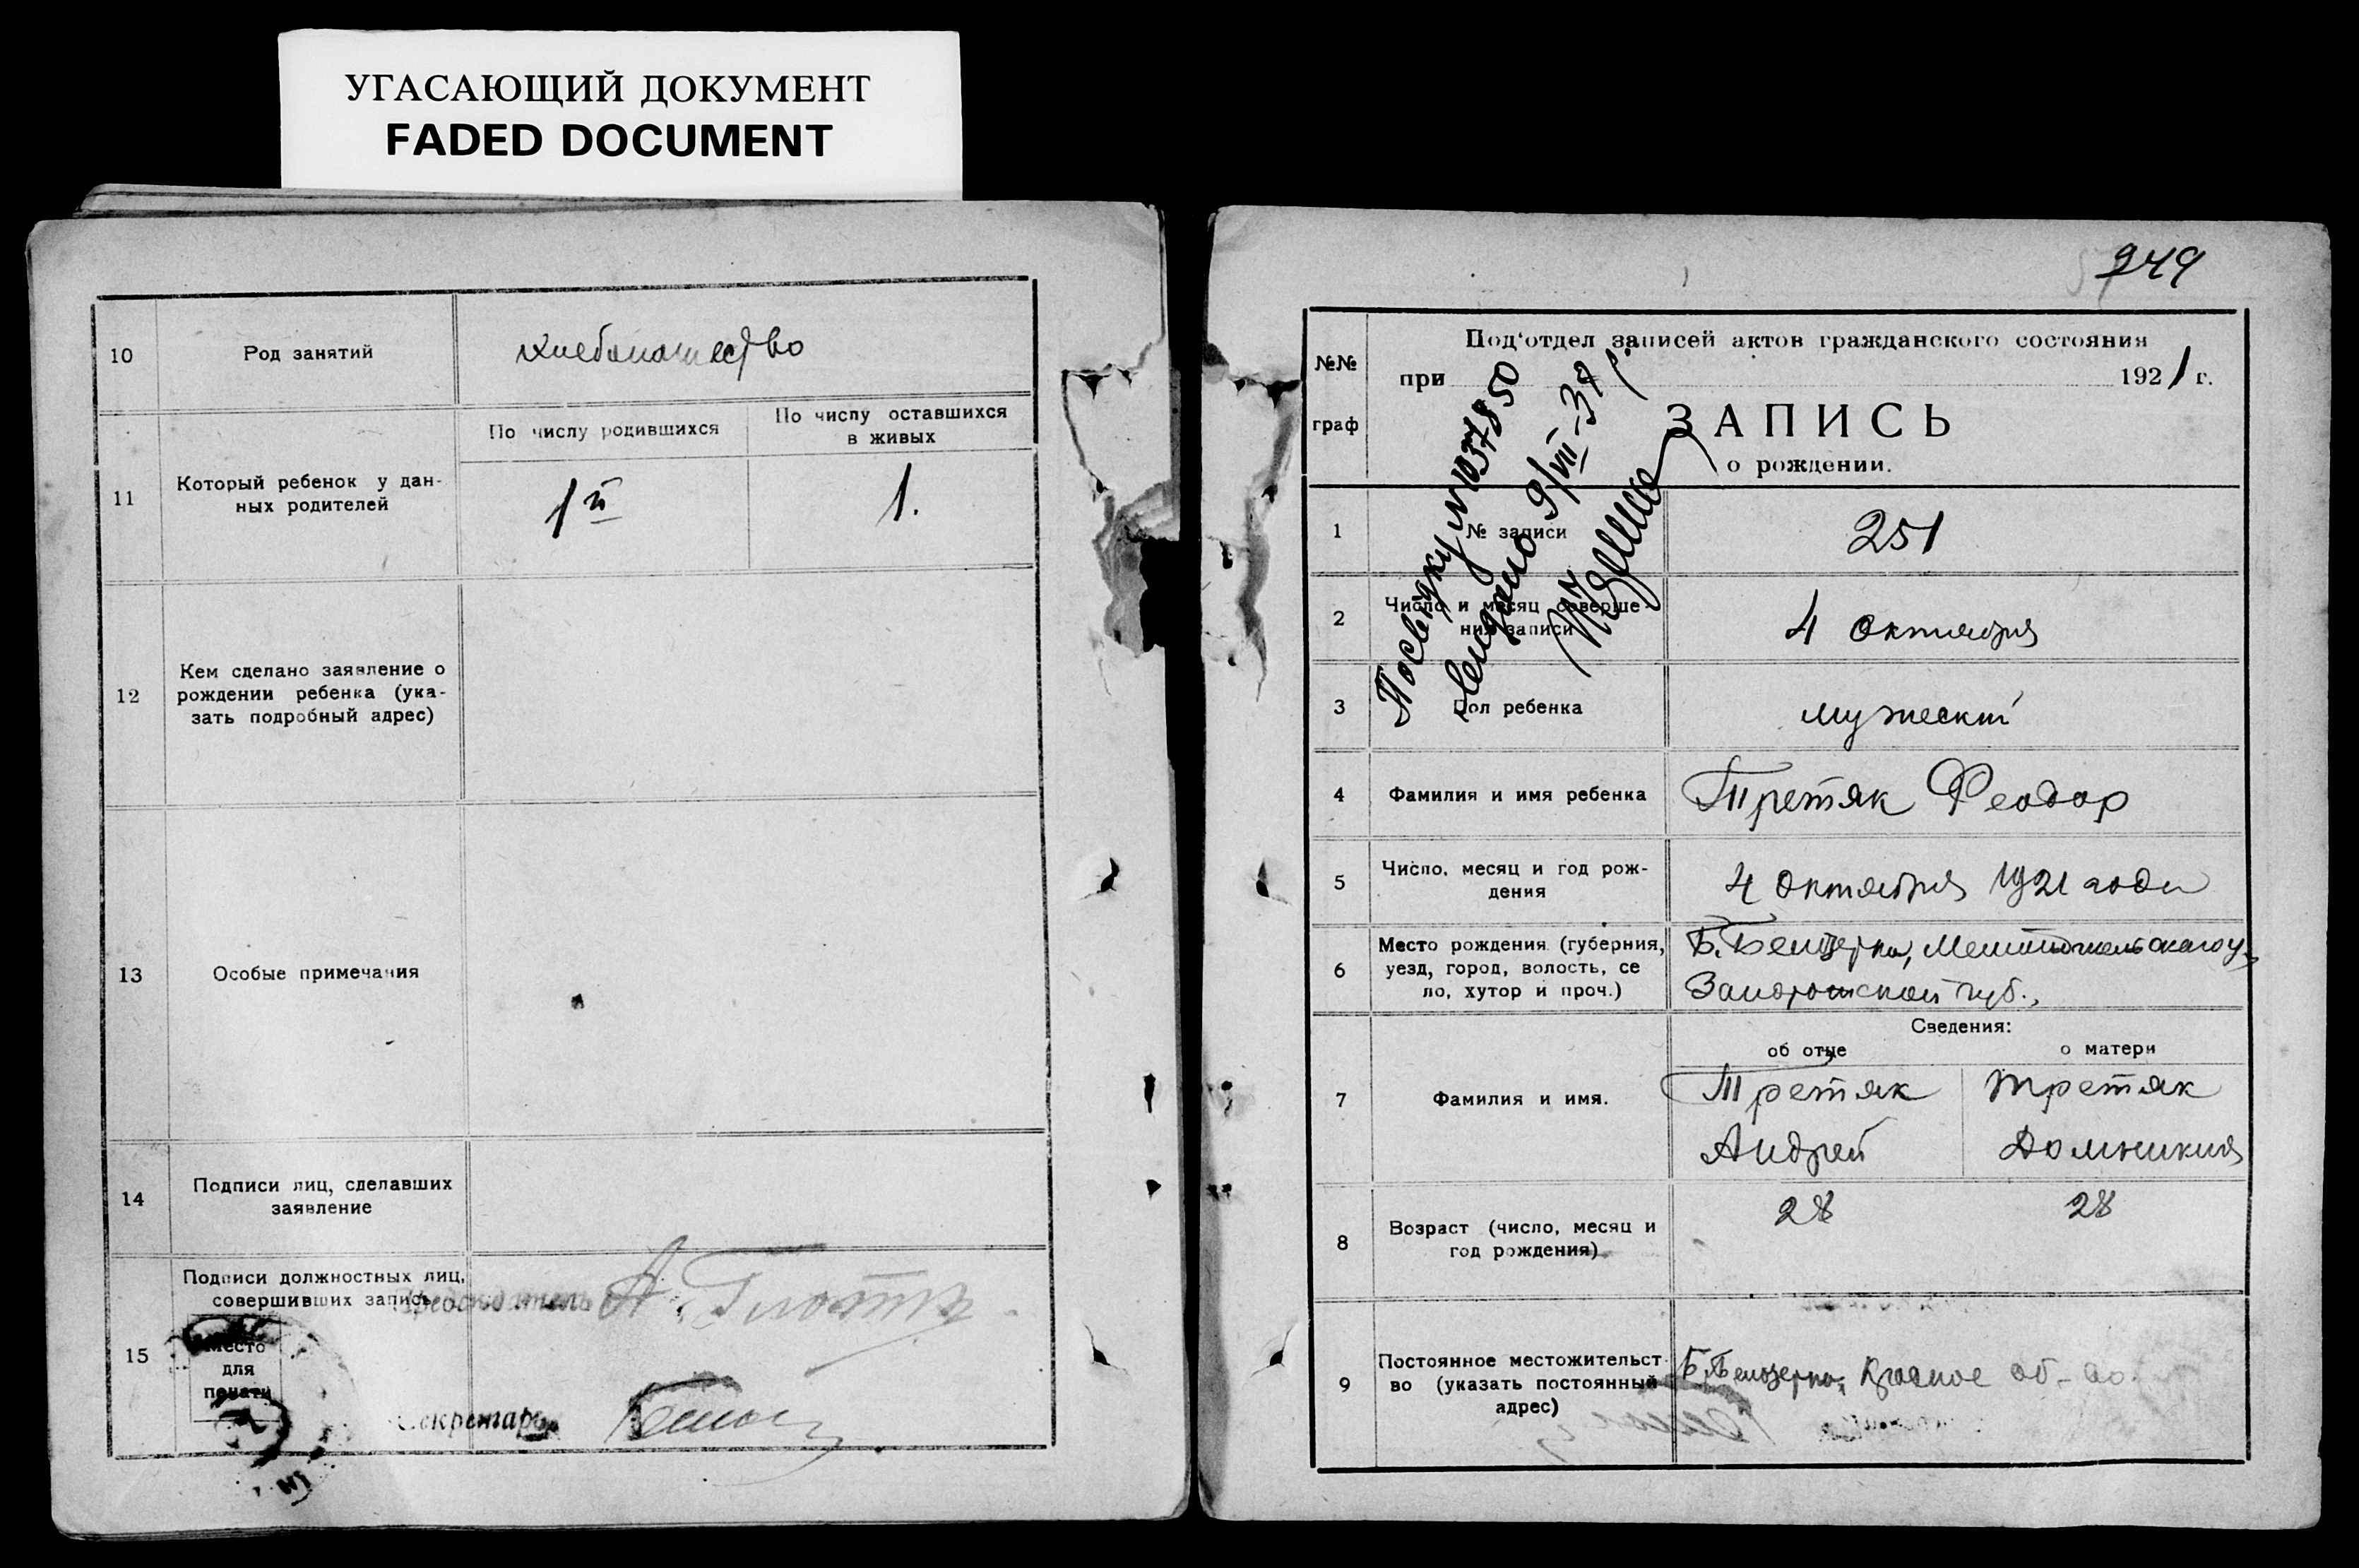 УГАСАЮЩИЙ ДОКУМЕНТ
FADED DOCUMENT
10
Род занятий
хлебопашество
11
Который ребенок у дан-
ных родителей
По числу родившихся
По числу оставшихся
в живых
1й
1.
12
Кем сделано заявление о
рождении ребенка (ука-
зать подробный адрес)
13
Особые примечания
14
Подписи лиц, сделавших
заявление
15
Подписи должностных лиц,
совершивших запись
Председатель А.
Место
для
печати
Секретарь
249
№№
граф
Под'отдел записей актов гражданского состояния
при 1921 г.
ЗАПИСЬ
о рождении.
Посвідку №1037850
9/VII-38 р.
1
№ записи
251
2
Число и месяц соверше-
ния записи
4 Октября
3
Пол ребенка
мужескій
4
Фамилия и имя ребенка
Третяк Феодор
5
Число, месяц и год рож-
дения
4 Октября 1921 года
6
Место рождения (губерния,
уезд, город, волость, се
ло, хутор и проч.)
Б. Белозерка, Мелитопольскаго у.,
Запорожской губ.,
Сведения:
об отце
о матери
7
Фамилия и имя.
Третяк
Андрей
Третяк
Домникия
8
Возраст (число, месяц и
год рождения)
28
28
9
Постоянное местожительст-
во (указать постоянный
адрес)
Б. Белозерка, Красное об-во.